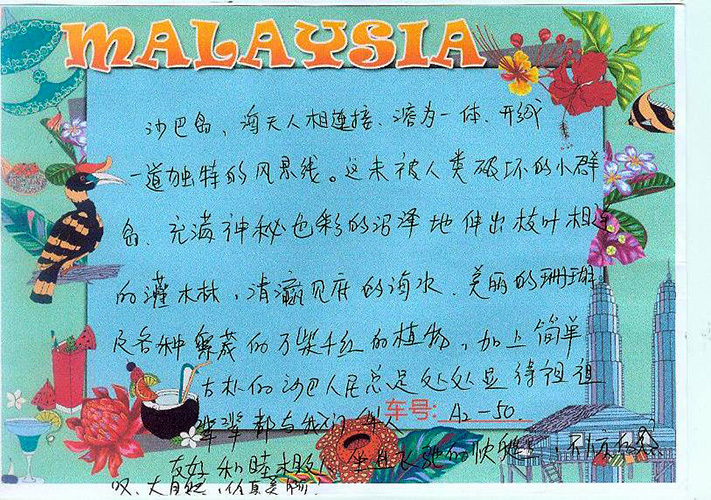 MALAYSIA
沙巴岛、海天人相连接、溶为一体、形成
一道独特的风景线。这未被人类破坏的小群
岛、充满神秘色彩的沼泽地伸出枝叶相连
的灌木林，清澈见底的海水、美丽的珊瑚
及各种繁茂的万紫千红的植物，加上简单
古朴的沙巴人民总是处处显得祖祖
辈辈都与我们
车号: A2-50.
友好和睦 坐在飞驰的快艇
叹、大自然